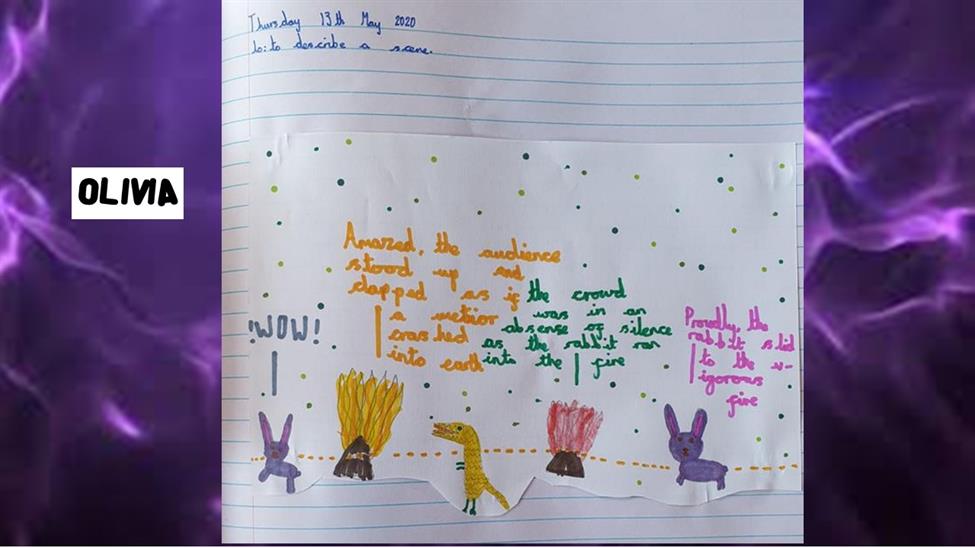 Thursday 13th May 2020
Lo: to describe a scene.
OLIVIA
Amazed, the audience
stood up and
clapped as if
a metior
crashed
into earth
the crowd
was in an
absense of silence
as the rabbit ran
into the fire
Proudly, the
rabbit slid
to the v-
igorous
fire
!WOW!